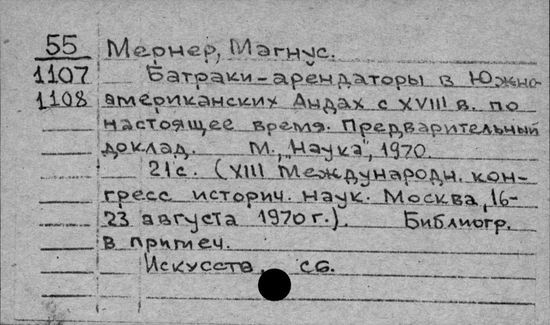 55 Мернер, Магнус.
1107 Батраки-арендаторы в Южно-
1108 американских Андах с XVIII в. по
настоящее время. Предварительный
доклад. М., "Наука", 1970.
21с. (XIII Международн. кон-
гресс историч. наук. Москва, 16-
23 августа 1970 г.). Библиогр.
в примеч.
Искусств. сб.